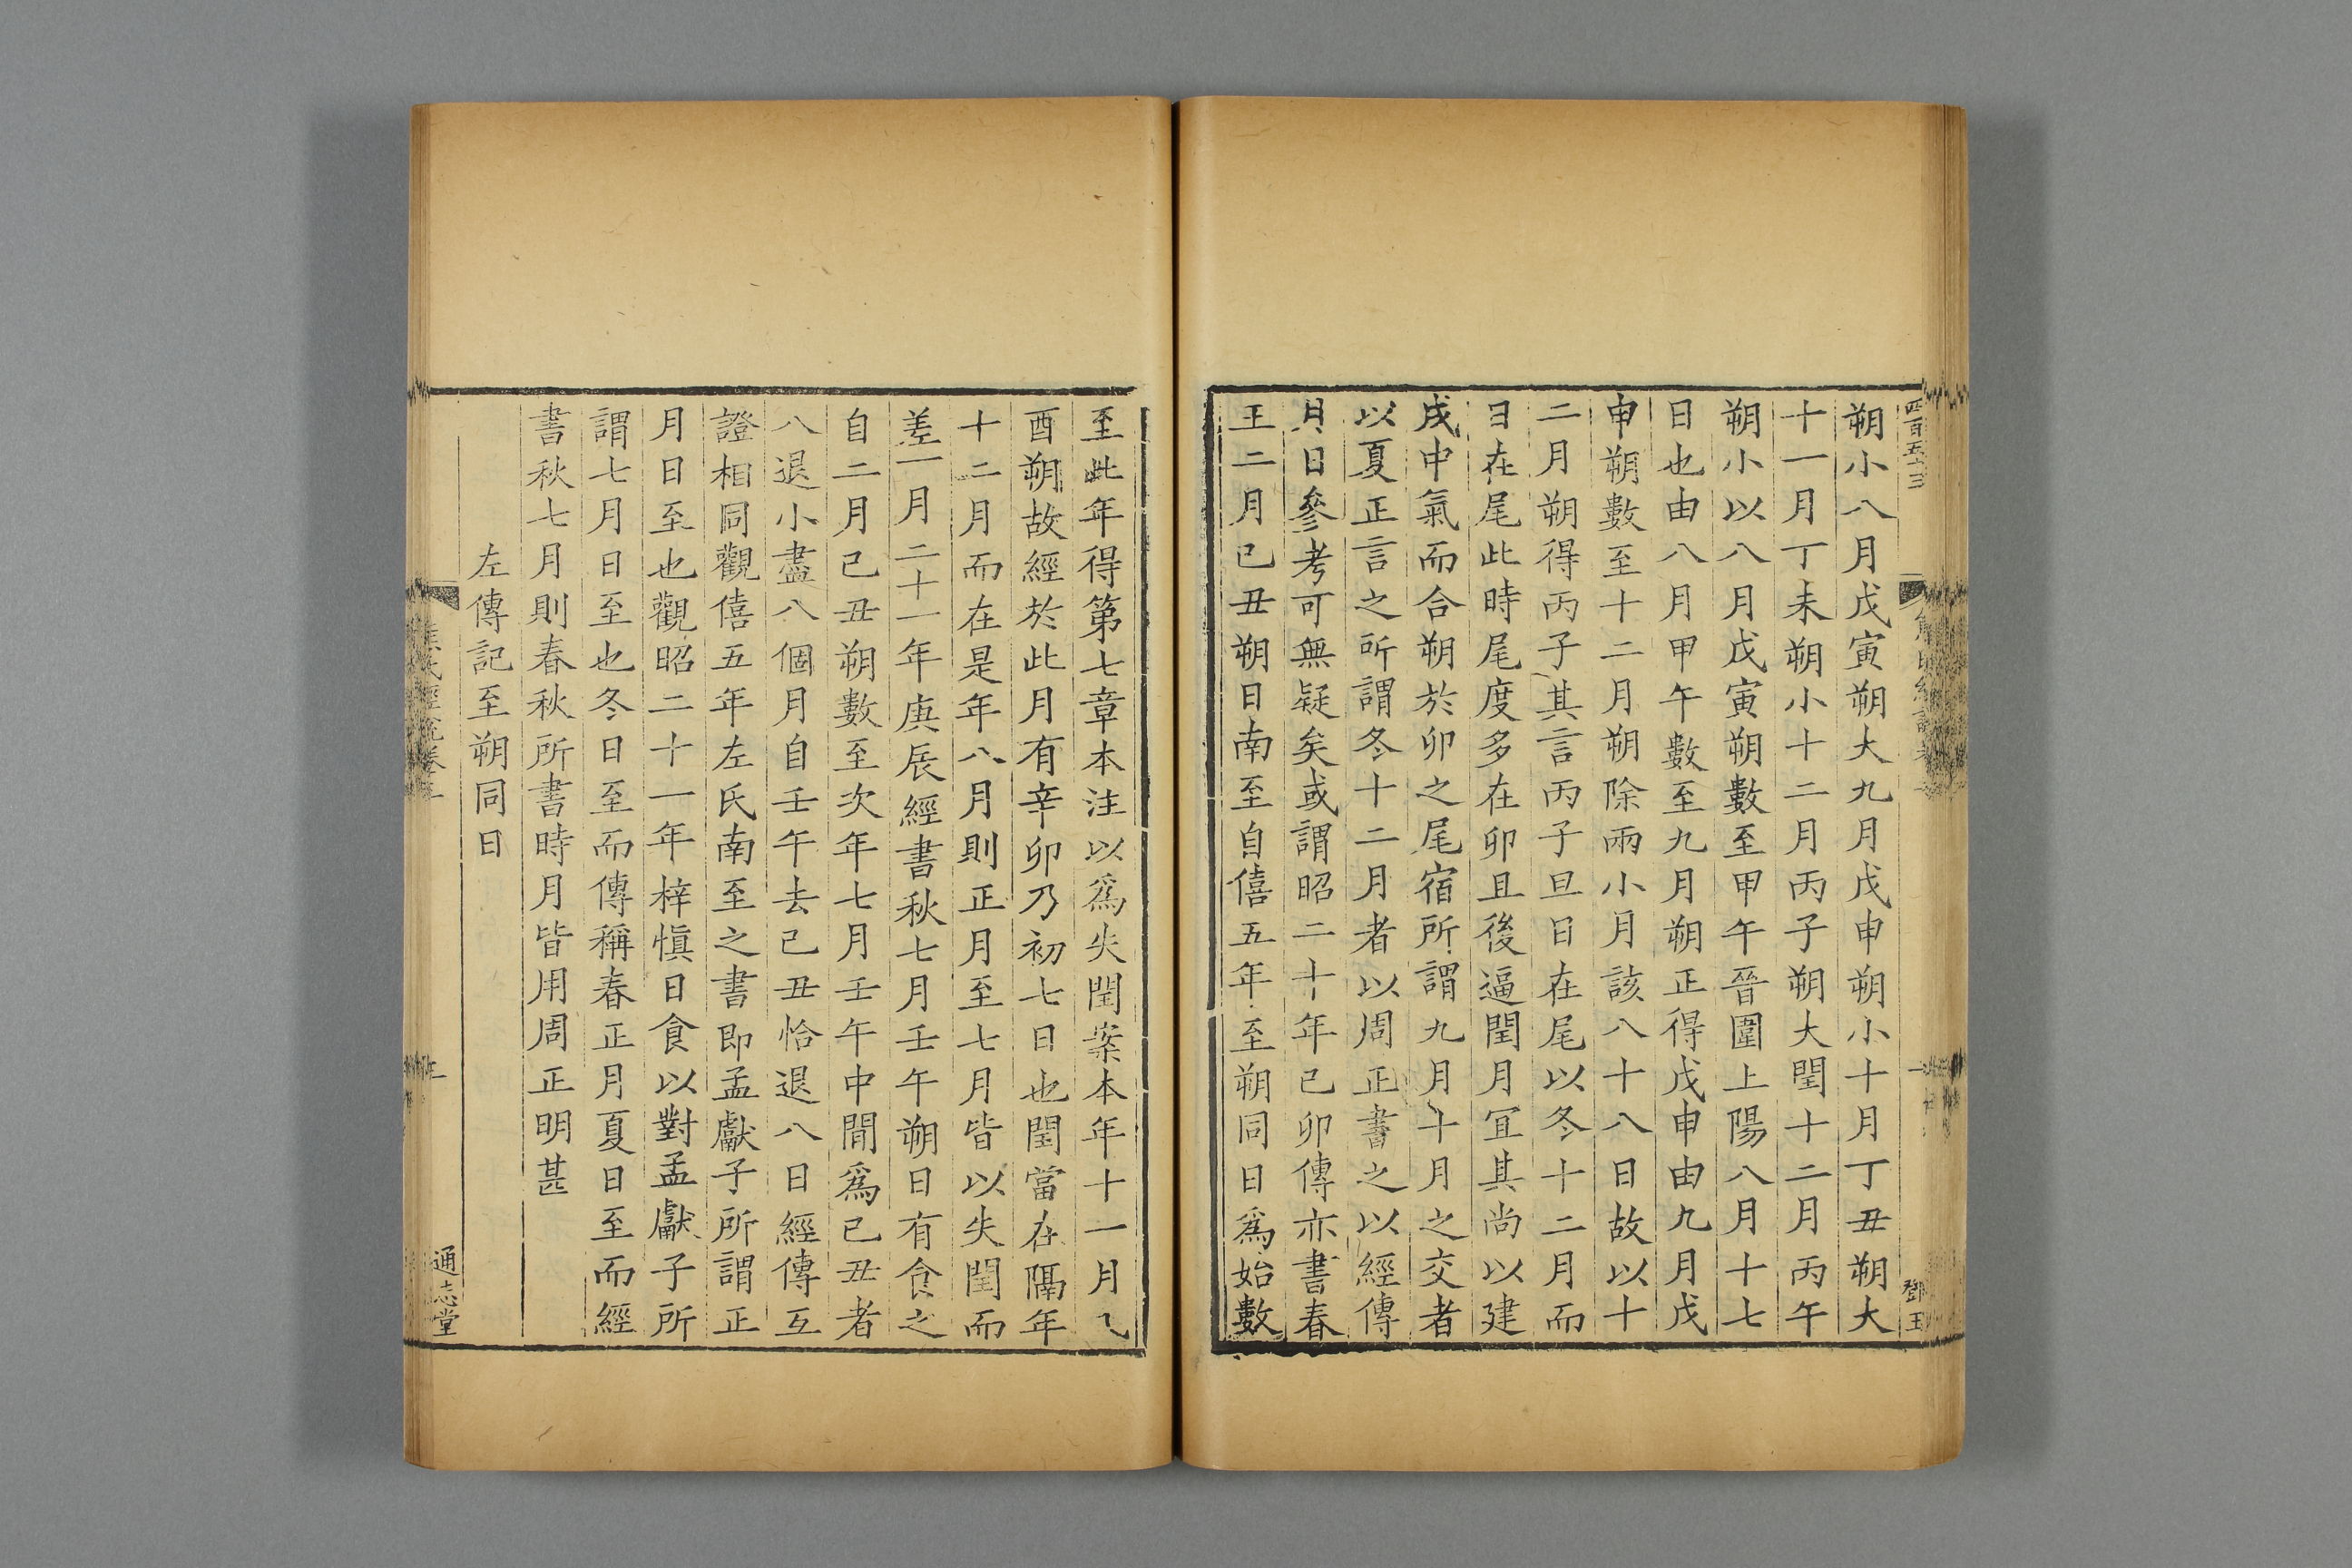 四百五十三
鄧玉
朔小八月戊寅朔大九月戊申朔小十月丁丑朔大
十一月丁未朔小十二月丙子朔大閏十二月丙午
朔小以八月戊寅朔數至甲午晉圍上陽八月十七
日也由八月甲午數至九月朔正得戊申由九月戊
申朔數至十二月朔除兩小月該八十八日故以十
二月朔得丙子其言丙子旦日在尾以冬十二月而
日在尾此時尾度多在卯且後逼閏月宜其尚以建
戌中氣而合朔於卯之尾宿所謂九月十月之交者
以夏正言之所謂冬十二月者以周正書之以經傳
月日參考可無疑矣或謂昭二十年己卯傳亦書春
王二月己丑朔日南至自僖五年至朔同日爲始數
至此年得第七章本注以爲失閏案本年十一月乀
酉朔故經於此月有辛卯乃初七日也閏當在隔年
十二月而在是年八月則正月至七月皆以失閏而
差一月二十一年庚辰經書秋七月壬午朔日有食之
自二月己丑朔數至次年七月壬午中間爲己丑者
八退小盡八個月自壬午去己丑恰退八日經傳互
證相同觀僖五年左氏南至之書即孟獻子所謂正
月日至也觀昭二十一年梓慎日食以對孟獻子所
謂七月日至也冬日至而傳稱春正月夏日至而經
書秋七月則春秋所書時月皆用周正明甚
左傳記至朔同日
通志堂